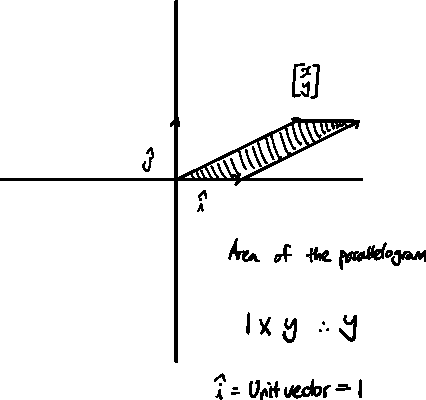 [x
y]
ĵ
î
Area of the parallelogram
1 x y ∴ y
î = Unit vector = 1